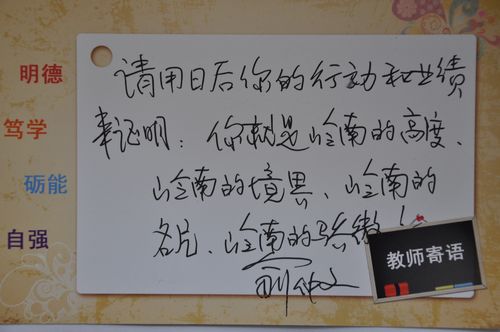 明德
笃学
砺能
自强
请用日后你的行动和业绩
来证明：你就是岭南的高度、
岭南的境界、岭南的
名片、岭南的骄傲！
教师寄语